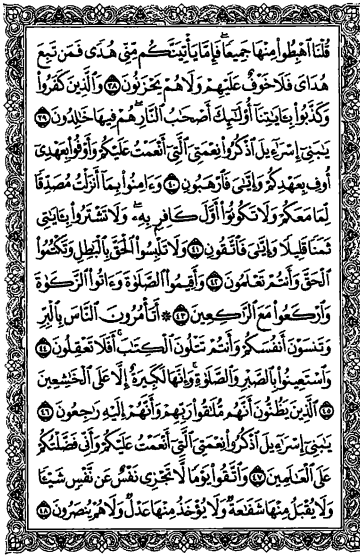 قُلْنَا ٱهْبِطُوا۟ مِنْهَا جَمِيعًا ۖ فَإِمَّا يَأْتِيَنَّكُم مِّنِّى هُدًى فَمَن تَبِعَ
هُدَاىَ فَلَا خَوْفٌ عَلَيْهِمْ وَلَا هُمْ يَحْزَنُونَ ٣٨ وَٱلَّذِينَ كَفَرُوا۟
وَكَذَّبُوا۟ بِـَٔايَـٰتِنَآ أُو۟لَـٰٓئِكَ أَصْحَـٰبُ ٱلنَّارِ ۖ هُمْ فِيهَا خَـٰلِدُونَ ٣٩
يَـٰبَنِىٓ إِسْرَٰٓءِيلَ ٱذْكُرُوا۟ نِعْمَتِىَ ٱلَّتِىٓ أَنْعَمْتُ عَلَيْكُمْ وَأَوْفُوا۟ بِعَهْدِىٓ
أُوفِ بِعَهْدِكُمْ وَإِيَّـٰىَ فَٱرْهَبُونِ ٤٠ وَءَامِنُوا۟ بِمَآ أَنزَلْتُ مُصَدِّقًا
لِّمَا مَعَكُمْ وَلَا تَكُونُوٓا۟ أَوَّلَ كَافِرٍۭ بِهِۦ ۖ وَلَا تَشْتَرُوا۟ بِـَٔايَـٰتِى
ثَمَنًا قَلِيلًا وَإِيَّـٰىَ فَٱتَّقُونِ ٤١ وَلَا تَلْبِسُوا۟ ٱلْحَقَّ بِٱلْبَـٰطِلِ وَتَكْتُمُوا۟
ٱلْحَقَّ وَأَنتُمْ تَعْلَمُونَ ٤٢ وَأَقِيمُوا۟ ٱلصَّلَوٰةَ وَءَاتُوا۟ ٱلزَّكَوٰةَ
وَٱرْكَعُوا۟ مَعَ ٱلرَّٰكِعِينَ ٤٣ ۞ أَتَأْمُرُونَ ٱلنَّاسَ بِٱلْبِرِّ
وَتَنسَوْنَ أَنفُسَكُمْ وَأَنتُمْ تَتْلُونَ ٱلْكِتَـٰبَ ۚ أَفَلَا تَعْقِلُونَ ٤٤
وَٱسْتَعِينُوا۟ بِٱلصَّبْرِ وَٱلصَّلَوٰةِ ۚ وَإِنَّهَا لَكَبِيرَةٌ إِلَّا عَلَى ٱلْخَـٰشِعِينَ
٤٥ ٱلَّذِينَ يَظُنُّونَ أَنَّهُم مُّلَـٰقُوا۟ رَبِّهِمْ وَأَنَّهُمْ إِلَيْهِ رَٰجِعُونَ ٤٦
يَـٰبَنِىٓ إِسْرَٰٓءِيلَ ٱذْكُرُوا۟ نِعْمَتِىَ ٱلَّتِىٓ أَنْعَمْتُ عَلَيْكُمْ وَأَنِّى فَضَّلْتُكُمْ
عَلَى ٱلْعَـٰلَمِينَ ٤٧ وَٱتَّقُوا۟ يَوْمًا لَّا تَجْزِى نَفْسٌ عَن نَّفْسٍ شَيْـًٔا
وَلَا يُقْبَلُ مِنْهَا شَفَـٰعَةٌ وَلَا يُؤْخَذُ مِنْهَا عَدْلٌ وَلَا هُمْ يُنصَرُونَ ٤٨